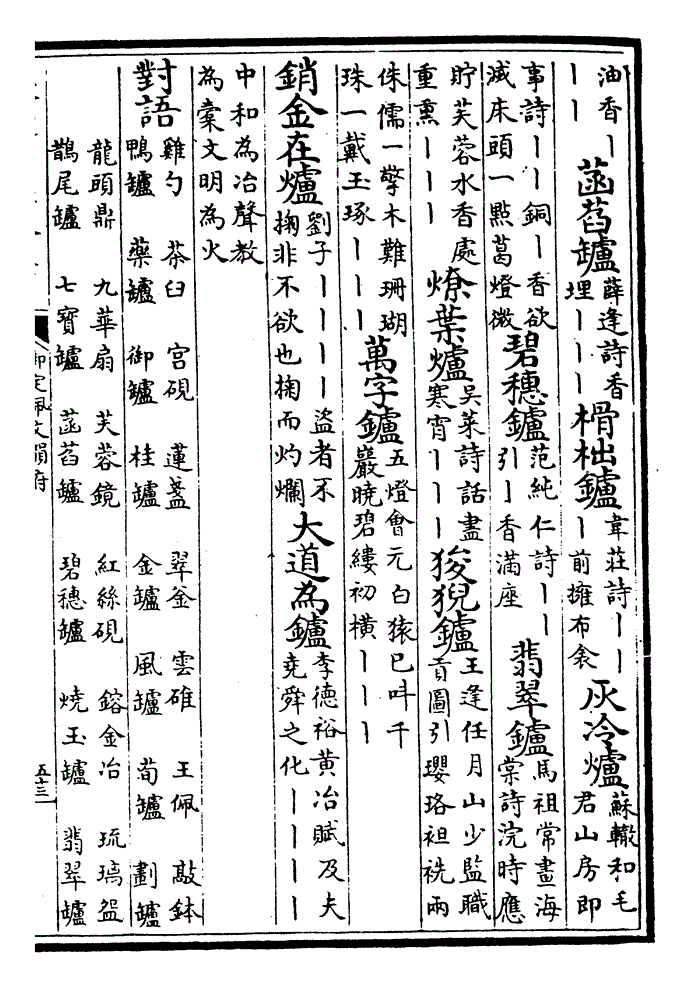 油香丨丨丨菡萏鑪薛逢詩香埋丨丨丨榾柮鑪韋莊詩丨丨丨前擁布衾灰冷爐蘇轍和毛君山房即
事詩丨丨銅丨香欲滅床頭一點葛燈微碧穗鑪范純仁詩丨丨引丨香滿座翡翠鑪馬祖常畫海棠詩浣時應
貯芙蓉水香處重熏丨丨丨燎葉爐吳萊詩話盡寒宵丨丨丨狻猊鑪王逢任月山少監職貢圖引瓔珞袒裼兩
侏儒一擎木難珊瑚珠一戴玉琢丨丨丨萬字鑪五燈會元白猿已叫千巖曉碧縷初橫丨丨丨
銷金在爐劉子丨丨丨丨盜者不掬非不欲也掬而灼爛大道為鑪李德裕黃冶賦及夫堯舜之化丨丨丨丨
中和為冶聲教為橐文明為火
對語雞勺 茶臼 宮硯 蓮盞 翠釜 雲碓 玉佩 敲鉢
鴨鑪 藥鑪 御鑪 桂鑪 金鑪 風鑪 荀鑪 劃鑪
龍頭鼎 九華扇 芙蓉鏡 紅絲硯 鎔金冶 琉璃盌
鵲尾鑪 七寶鑪 菡萏鑪 碧穗鑪 燒玉鑪 翡翠鑪
御定佩文韻府
五十三